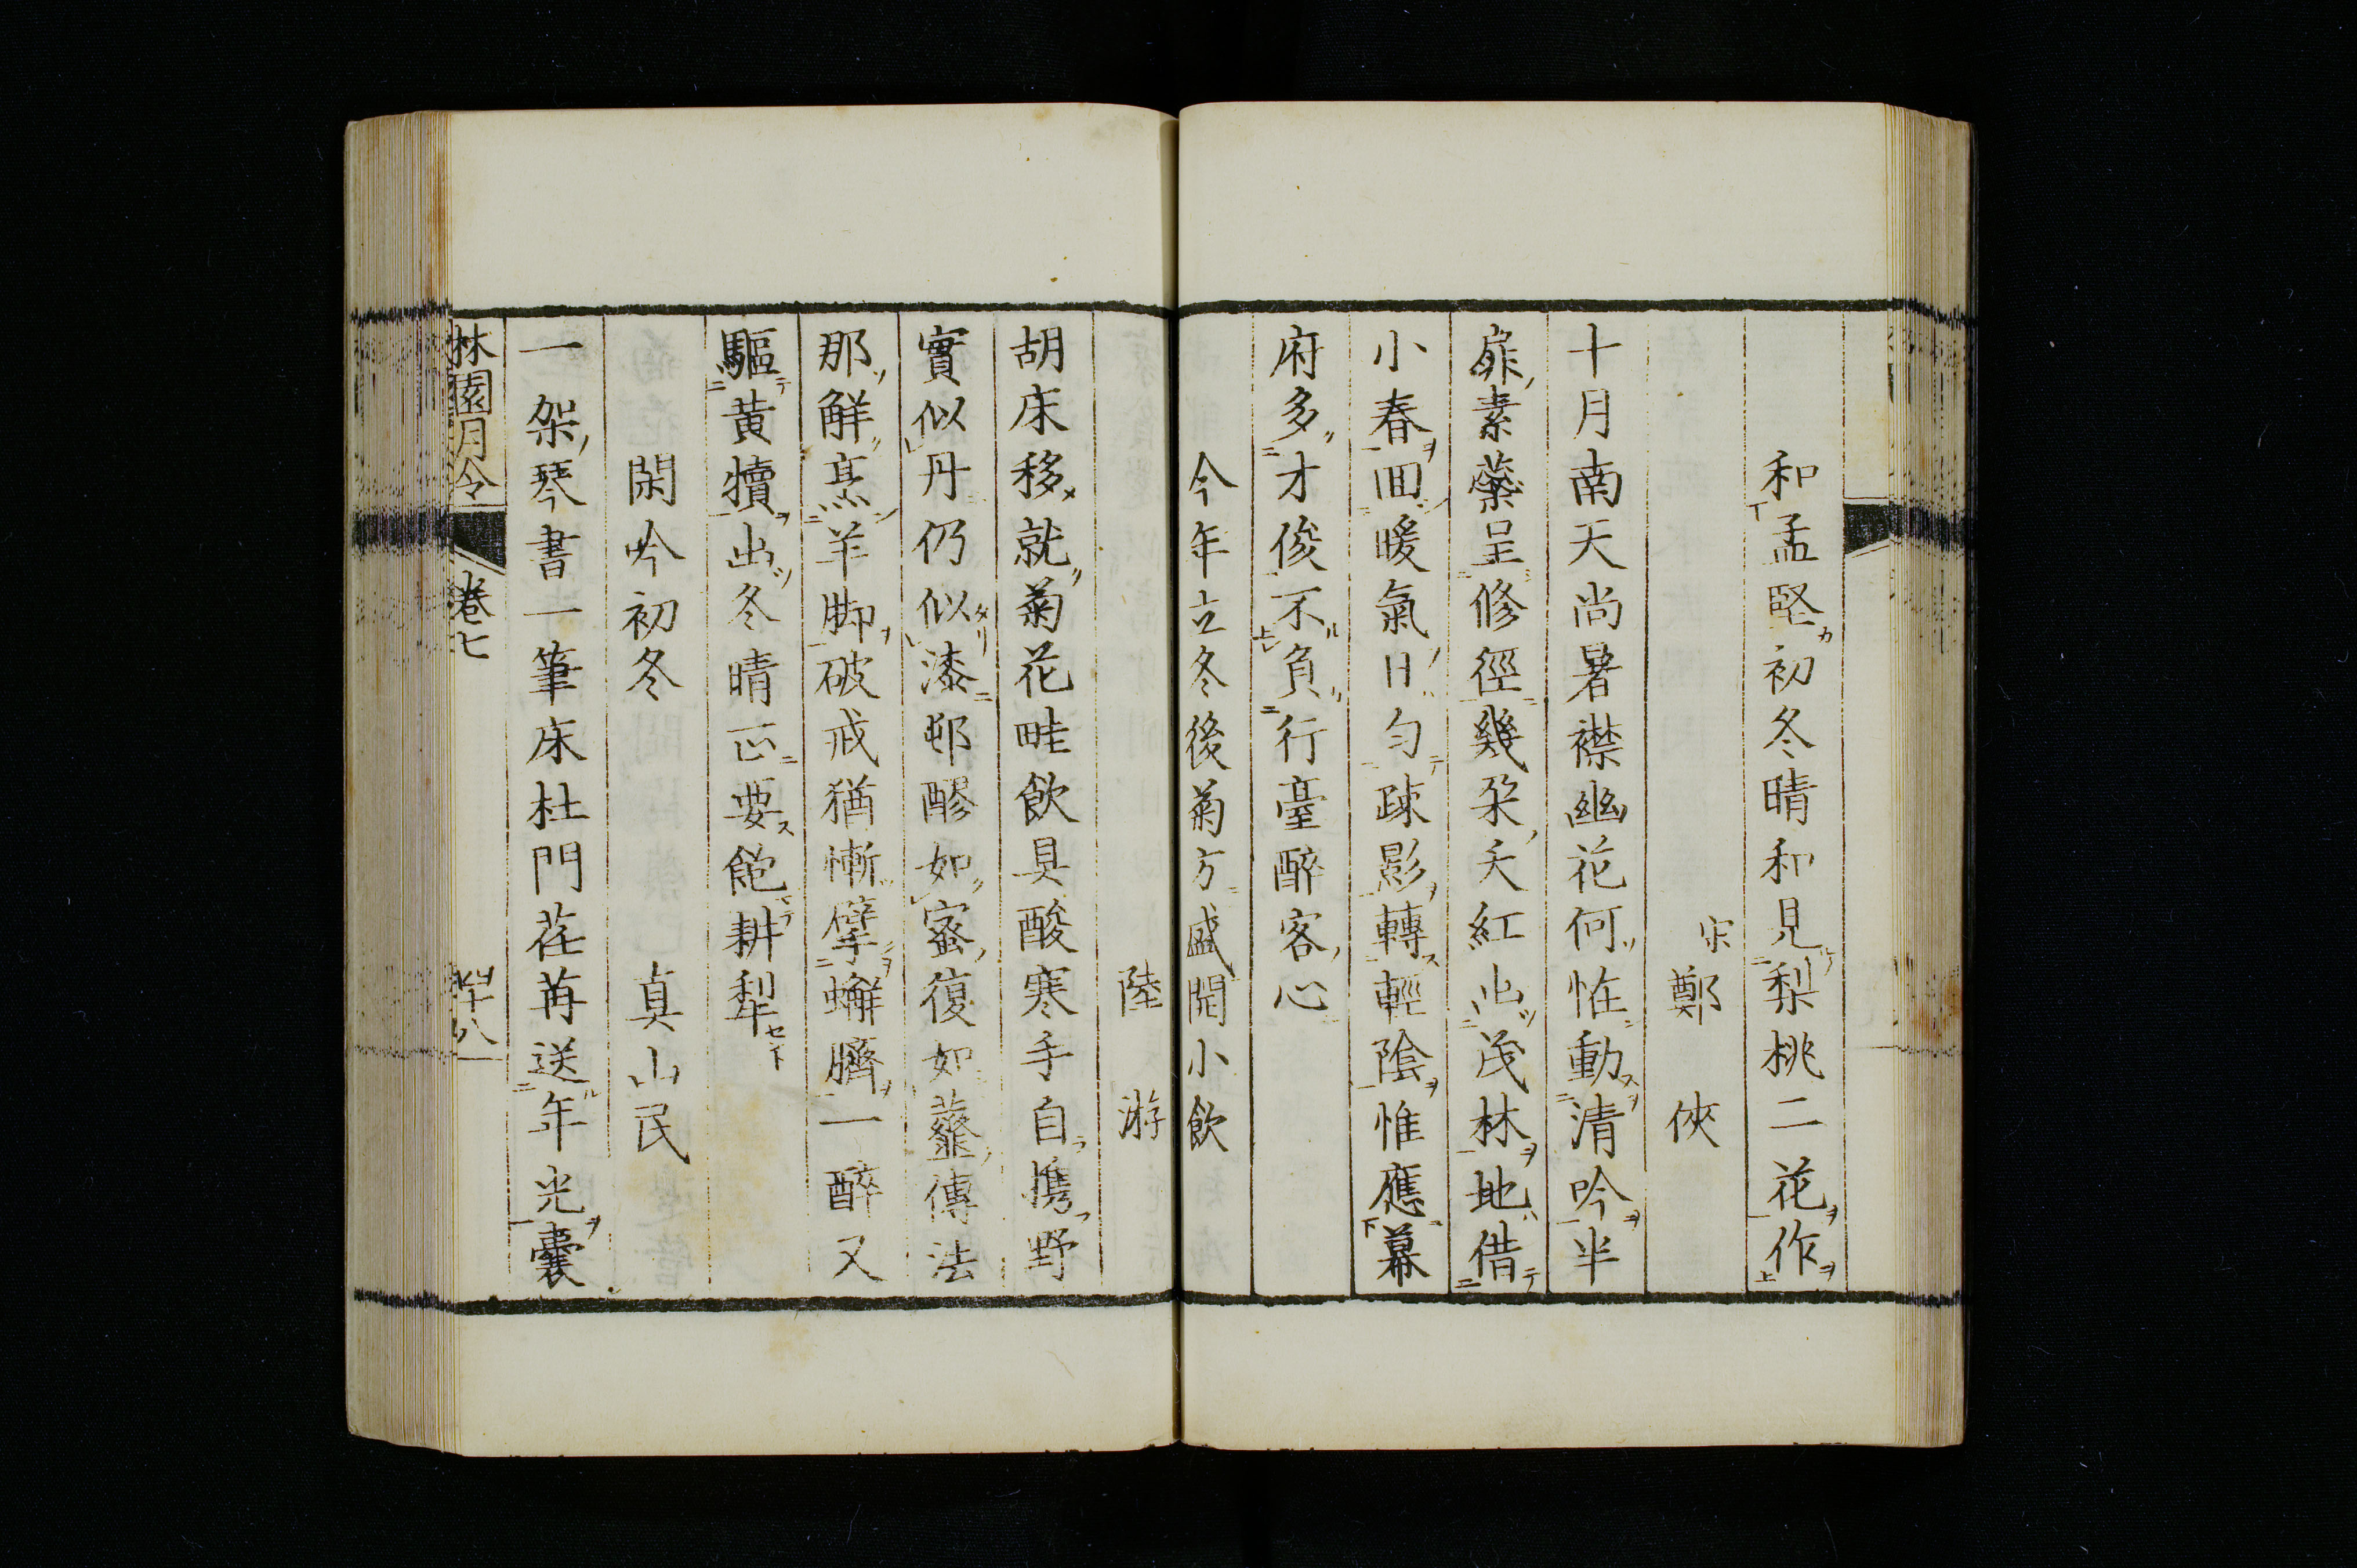 和孟堅初冬晴和見梨桃二花作
宋鄭俠
十月南天尚暑襟幽花何恠動清吟半
扉素蘂呈修徑幾朶夭紅出茂林地借
小春回暖氣日勻疎影轉輕陰惟應幕
府多才俊不負行臺醉客心
今年立冬後菊方盛開小飲
陸游
胡床移就菊花畦飲具酸寒手自携野
實似丹仍似漆邨醪如蜜復如虀傳法
那觧烹羊脚破戒猶慚擘蠏臍一醉又
驅黄犢出冬晴正要飽耕犁
閑吟初冬
真山民
一架琴書一筆床杜門荏苒送年光囊
林園月令
卷七
四十八